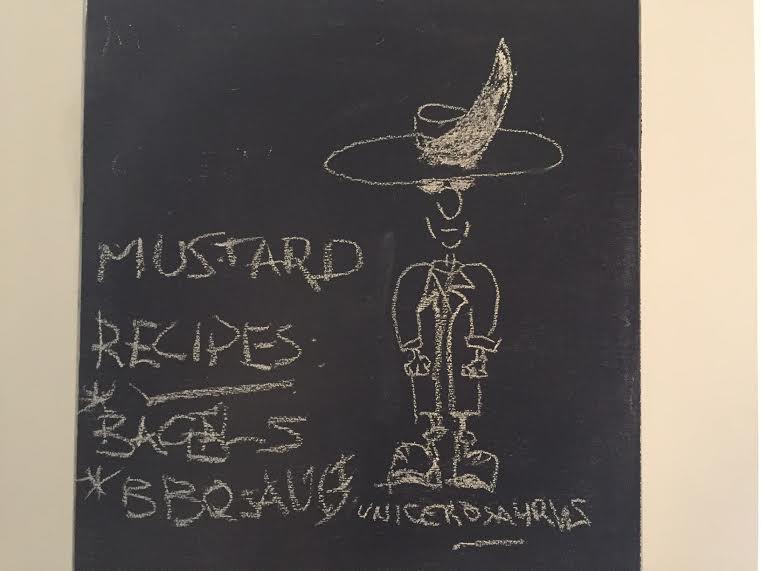 MUSTARD
RECIPES
* BAGELS
* BBQ SAUC
UNICEROSAURUS